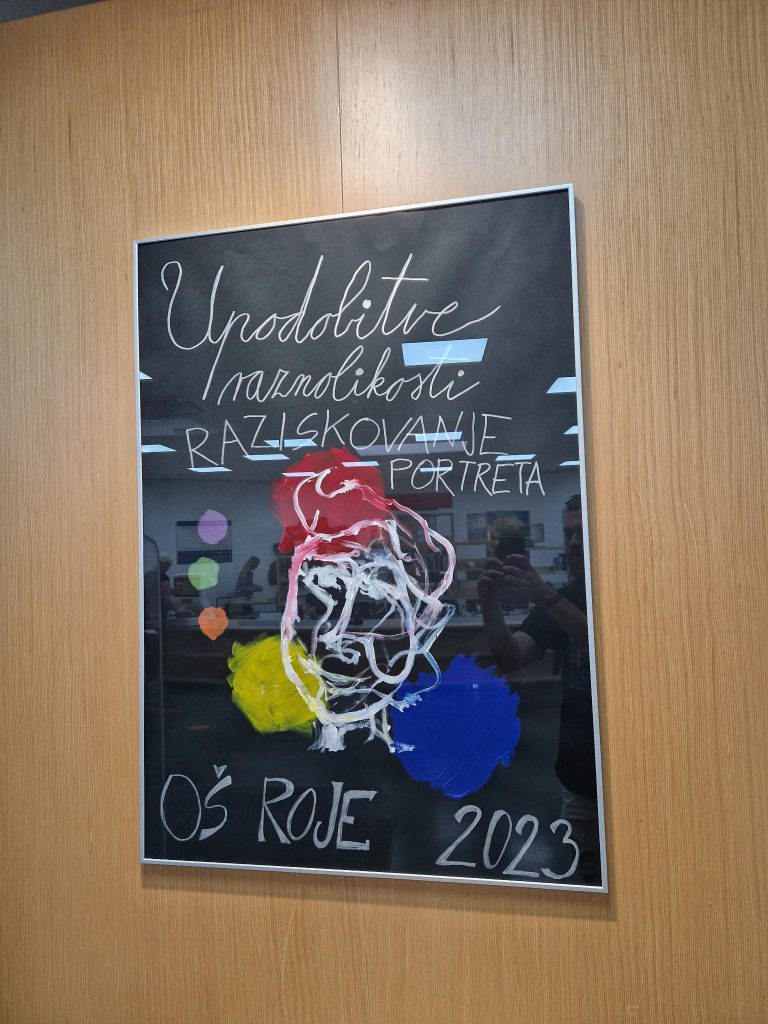 Upodobitve
raznolikosti
RAZISKOVANJE
PORTRETA
OŠ ROJE 2023